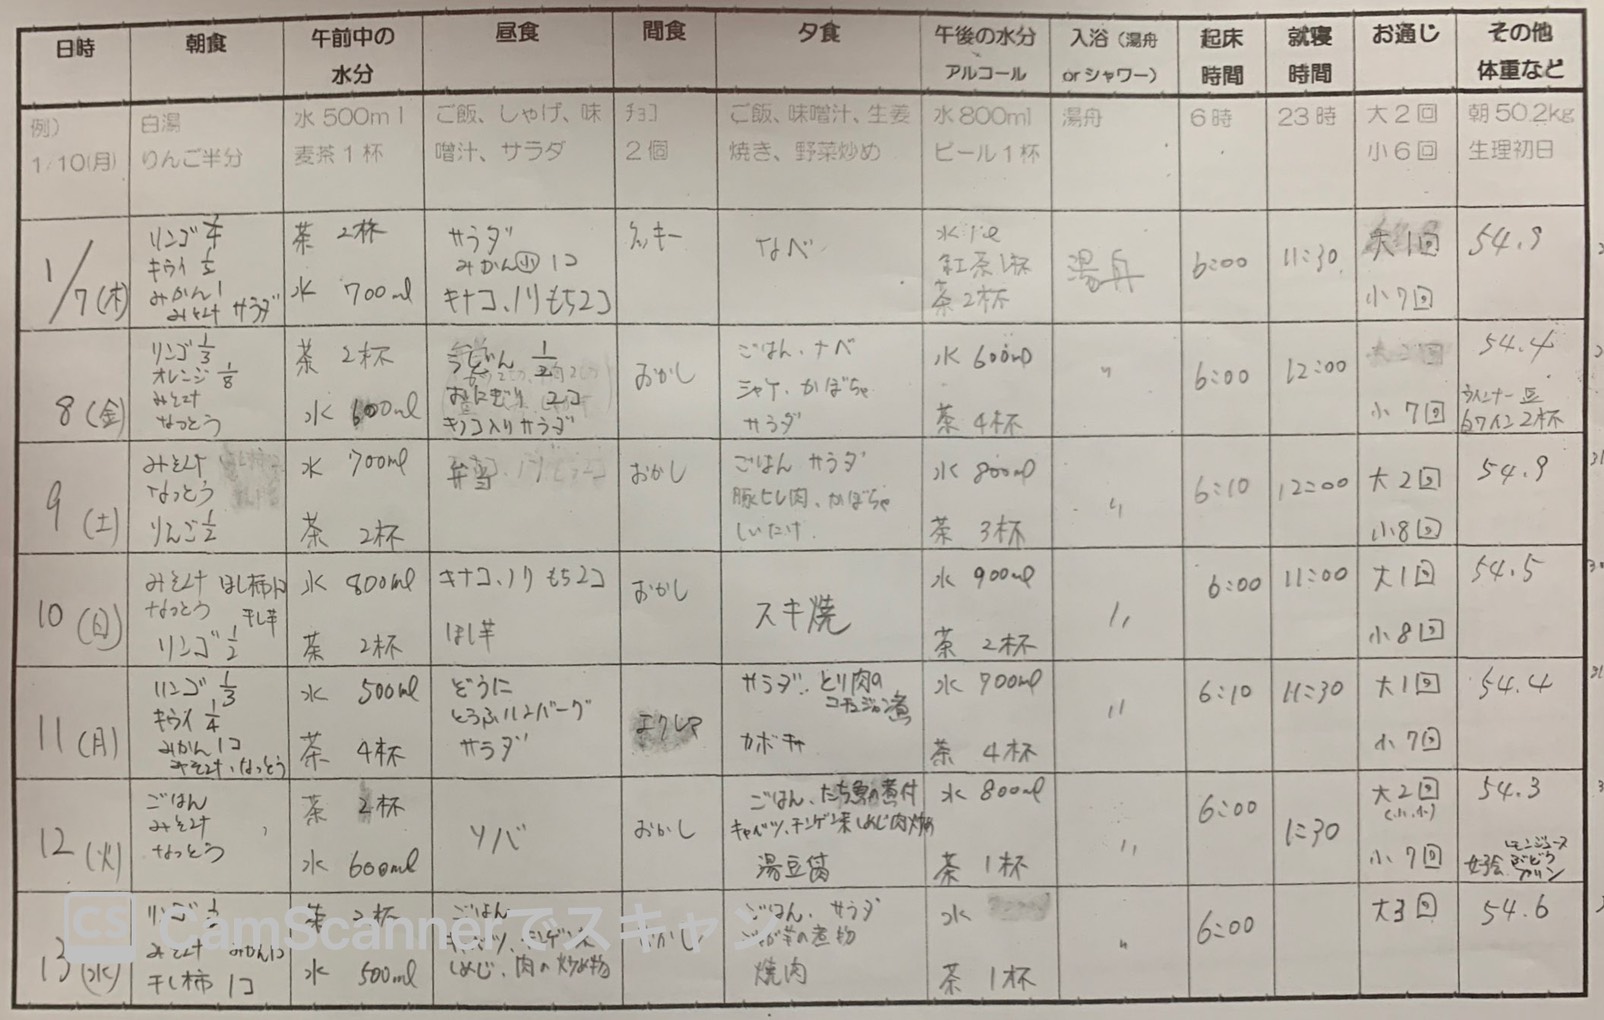 日時
朝食
午前中の
水分
昼食
間食
夕食
午後の水分
アルコール
入浴（湯舟
orシャワー）
起床
時間
就寝
時間
お通じ
その他
体重など
例）
1/10(月)
白湯
りんご半分
水500ml
麦茶1杯
ご飯、しゃげ、味
噌汁、サラダ
チョコ
2個
ご飯、味噌汁、生姜
焼き、野菜炒め
水800ml
ビール1杯
湯舟
6時
23時
大2回
小6回
朝50.2kg
生理初日
1/7(木)
リンゴ
キウイ
みかん1
みそ汁 サラダ
茶 2杯
水 700ml
サラダ
みかん小 1コ
キナコ、ノリもち2コ
クッキー
なべ
水1ℓ
紅茶1杯
茶2杯
湯舟
6:00
11:30
大1回
小7回
54.9
8(金)
リンゴ1/3
オレンジ1/8
みそ汁
なっとう
茶 2杯
水 600ml
うどん 1/2
おにぎり 2コ
キノコ入りサラダ
おかし
ごはん、ナベ
シャケ、かぼちゃ
サラダ
水600ml
茶4杯
〃
6:00
12:00
小7回
54.4
ウインナー 豆
白ワイン2杯
9(土)
みそ汁
なっとう
りんご1/2
水 700ml
茶 2杯
弁当
おかし
ごはん サラダ
豚ヒレ肉、かぼちゃ
しいたけ
水 800ml
茶 3杯
〃
6:10
12:00
大2回
小8回
54.9
10(日)
みそ汁 ほし柿1コ
なっとう 干し芋
リンゴ1/2
水 800ml
茶 2杯
キナコ、ノリもち2コ
ほし芋
おかし
スキ焼
水 900ml
茶 2杯
〃
6:00
11:00
大1回
小8回
54.5
11(月)
リンゴ1/3
キウイ1/4
みかん1コ
みそ汁、なっとう
水 500ml
茶 4杯
ぞうに
とうふハンバーグ
サラダ
エクレア
サラダ、とり肉の
コチュジャン煮
カボチャ
水 700ml
茶 4杯
〃
6:10
11:30
大1回
小7回
54.4
12(火)
ごはん
みそ汁
なっとう
茶 2杯
水 600ml
ソバ
おかし
ごはん、たち魚の煮付
キャベツ、チンゲン菜しめじ肉炒め
湯豆腐
水800ml
茶 1杯
〃
6:00
1:30
大2回
(小、小)
小7回
54.3
レモンジュース
ぶどう
プリン
女子会
13(水)
リンゴ
みそ汁 みかん1コ
干し柿 1コ
茶 2杯
水 500ml
ごはん
キャベツ、チンゲン菜
しめじ、肉の炒め物
おかし
ごはん、サラダ
じゃが芋の煮物
焼肉
水
茶 1杯
〃
6:00
大3回
54.6
CS CamScannerでスキャン